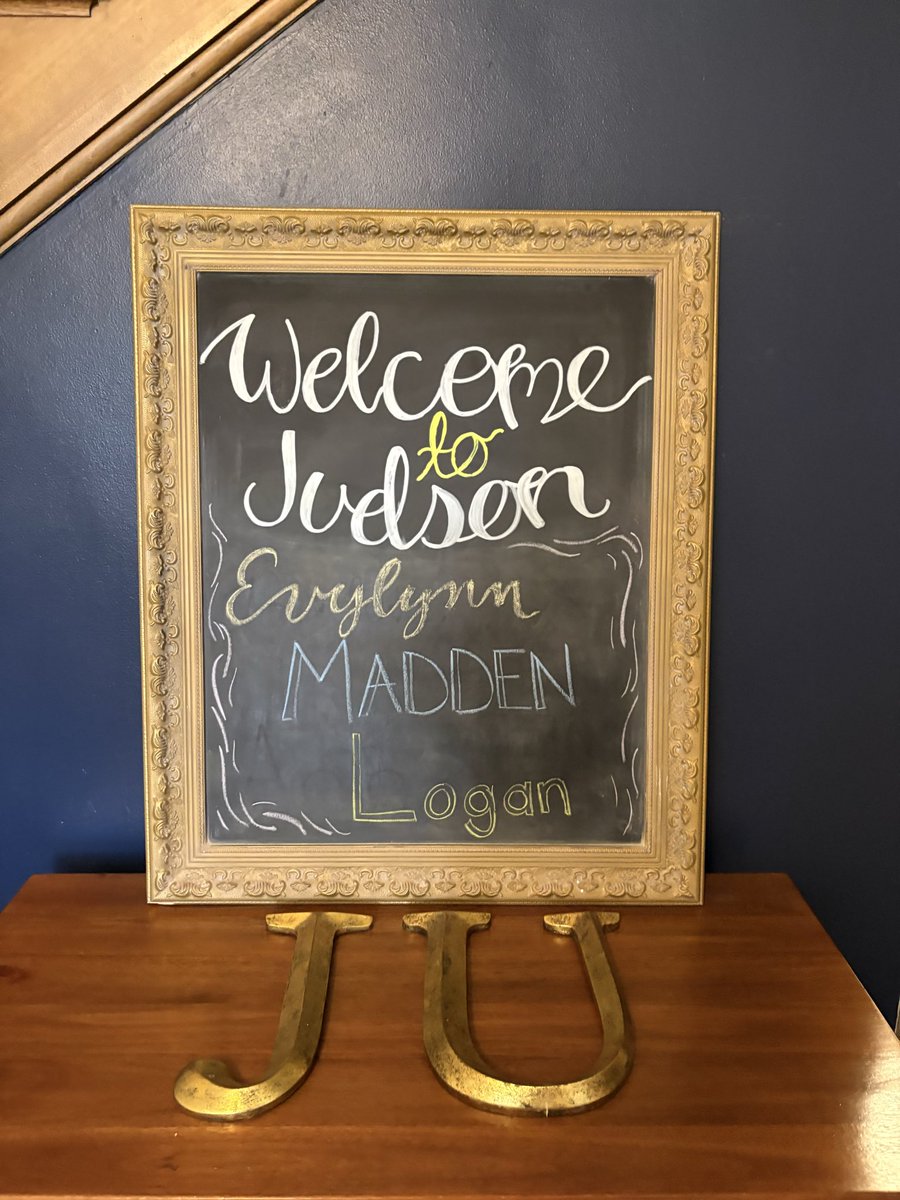 Welcome
to
Judson
Evylynn
MADDEN
Logan
JU